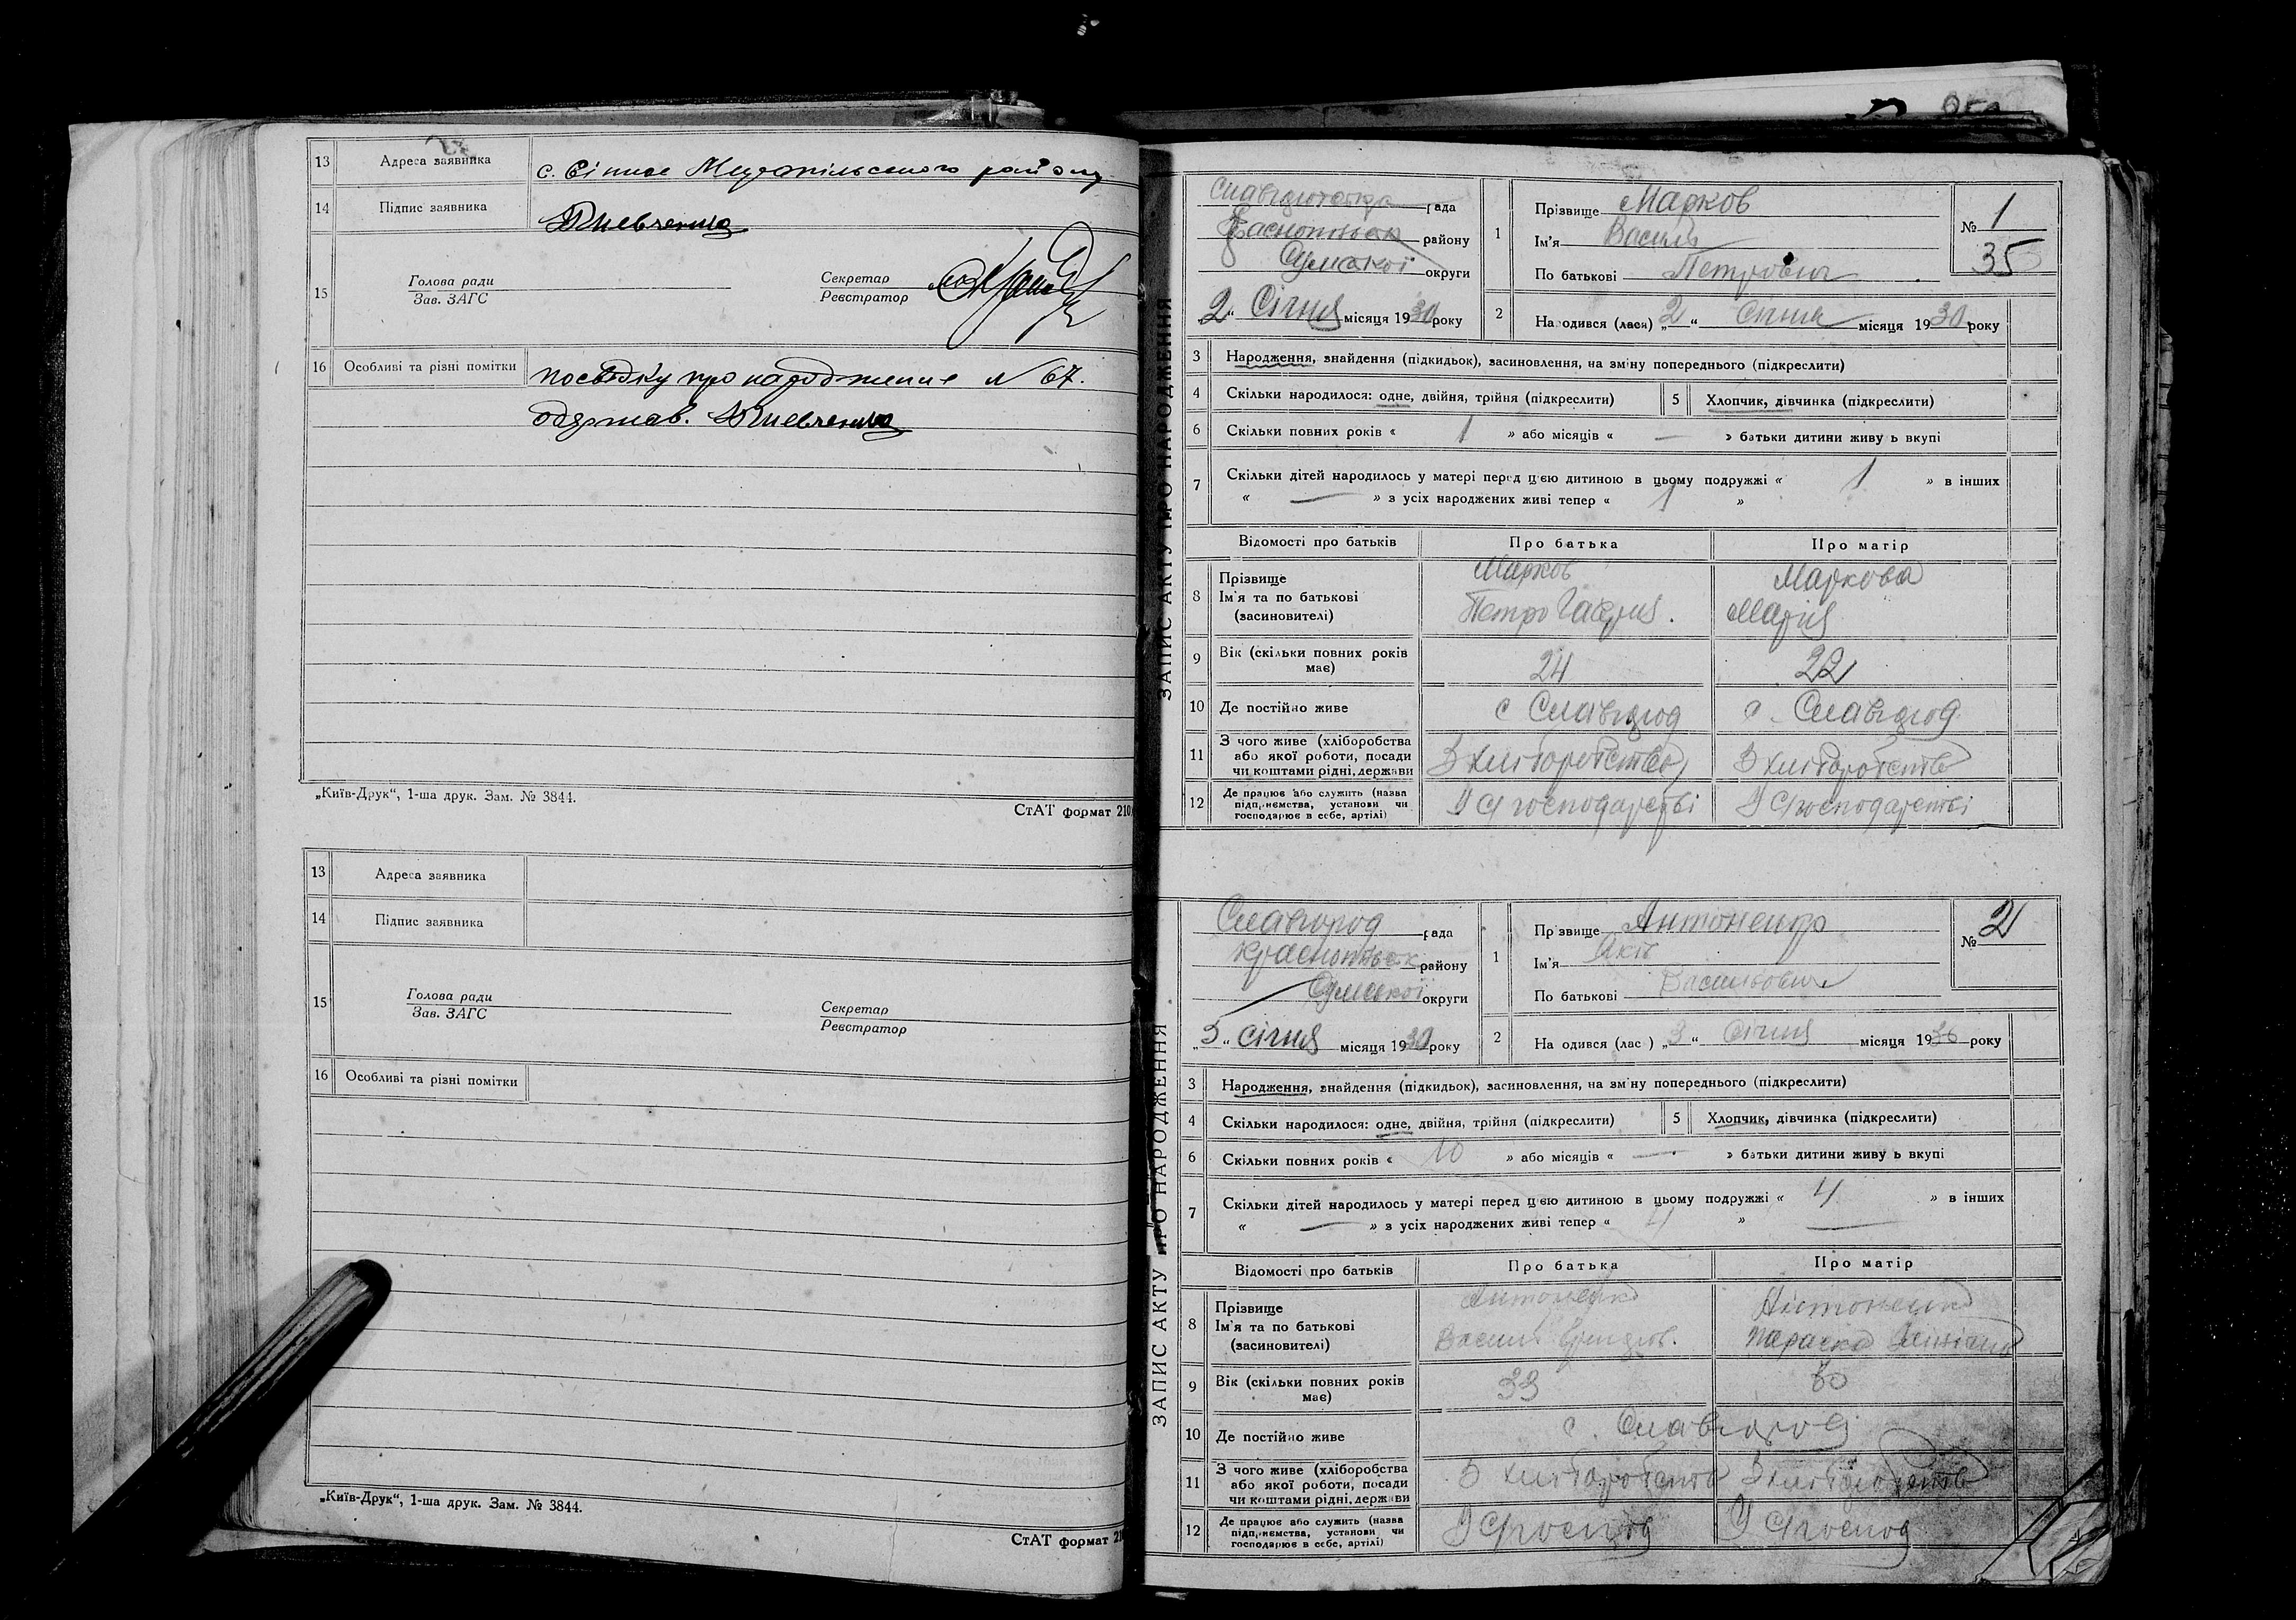 13 Адреса заявника с. Вітне Миропільського району
14 Підпис заявника
15 Голова ради Секретар
Зав. ЗАГС Реєстратор
16 Особливі та різні помітки посвідку про народження № 67.
одержав.
„Київ-Друк“, 1-ша друк. Зам. № 3844.
СтАТ формат 210
13 Адреса заявника
14 Підпис заявника
15 Голова ради Секретар
Зав. ЗАГС Реєстратор
16 Особливі та різні помітки
„Київ-Друк“, 1-ша друк. Зам. № 3844.
СтАТ формат 21
ЗАПИС АКТУ ПРО НАРОДЖЕННЯ
рада
району
Сумської округи
2 “ Січня місяця 1930 року
1 Прізвище Марков
Ім'я Василь
По батькові Петрович
№ 1
35
2 Народився (лася) „2“ Січня місяця 1930 року
3 Народження, знайдення (підкидьок), засиновлення, на зміну попереднього (підкреслити)
4 Скільки народилося: одне, двійня, трійня (підкреслити) 5 Хлопчик, дівчинка (підкреслити)
6 Скільки повних років « 1 » або місяців « — » батьки дитини живу ь вкупі
7 Скільки дітей народилось у матері перед цією дитиною в цьому подружжі « 1 » в інших
« — » з усіх народжених живі тепер « 1 »
Відомості про батьків Про батька Про матір
8 Прізвище Марков Маркова
Ім'я та по батькові Петро Марія
(засиновителі)
9 Вік (скільки повних років має) 24 22
10 Де постійно живе с Славгород с. Славгород
11 З чого живе (хліборобства або якої роботи, посади чи коштами рідні, держави З хліборобства З хліборобств
12 Де працює або служить (назва підприємства, установи чи господарює в себе, артілі) У с/господарстві У с/господарстві
ЗАПИС АКТУ ПРО НАРОДЖЕННЯ
Славгород рада
Краснопільск району
Сумської округи
„3“ січня місяця 1930 року
1 Прізвище Антоненко
Ім'я Яків
По батькові Васильович
№ 2
2 На одився (лас ) „3“ Січня місяця 1930 року
3 Народження, знайдення (підкидьок), засиновлення, на зміну попереднього (підкреслити)
4 Скільки народилося: одне, двійня, трійня (підкреслити) 5 Хлопчик, дівчинка (підкреслити)
6 Скільки повних років « 10 » або місяців « — » батьки дитини живу ь вкупі
7 Скільки дітей народилось у матері перед цією дитиною в цьому подружжі « 4 » в інших
« — » з усіх народжених живі тепер « 4 » —
Відомості про батьків Про батька Про матір
8 Прізвище Антоненко Антоненко
Ім'я та по батькові Василь Параска
(засиновителі)
9 Вік (скільки повних років має) 33 30
10 Де постійно живе с. Славгород
11 З чого живе (хліборобства або якої роботи, посади чи коштами рідні, держави З хліборобств З хліборобств
12 Де працює або служить (назва підприємства, установи чи господарює в себе, артілі) У с/господ У с/господ